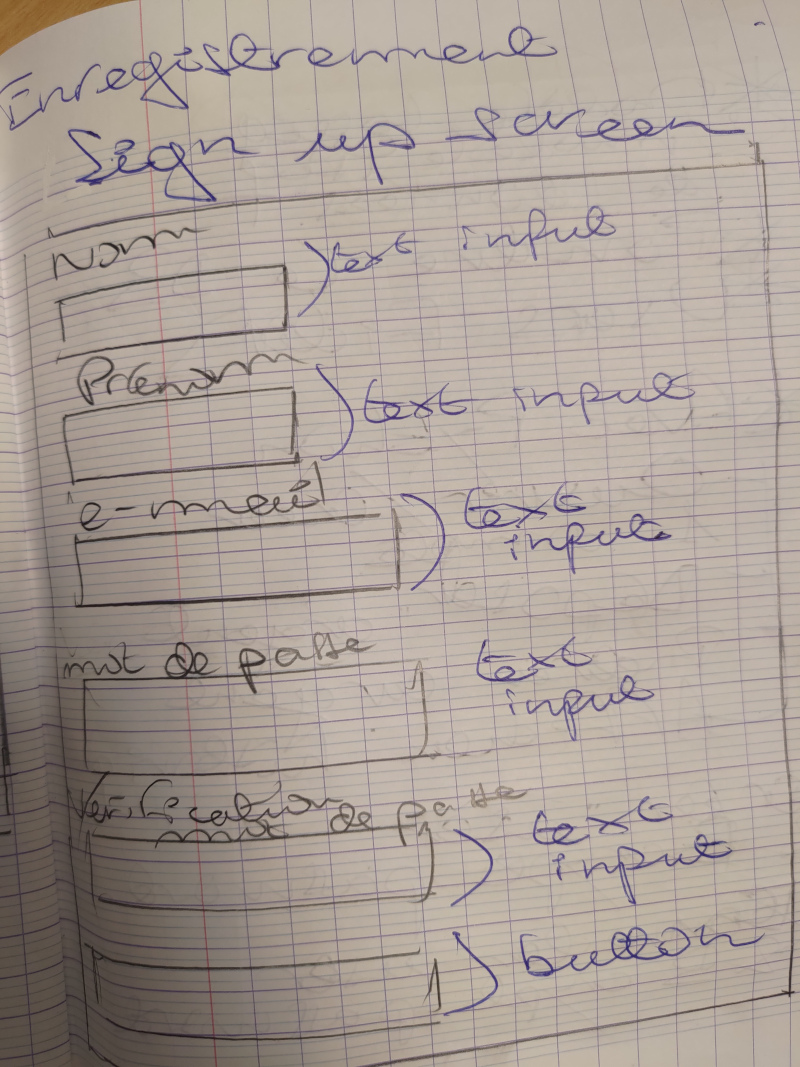 Enregistrement
Sign up screen
Nom
text input
Prénom
text input
e-mail
text
input
mot de passe
text
input
Verification
mot de passe
text
input
button